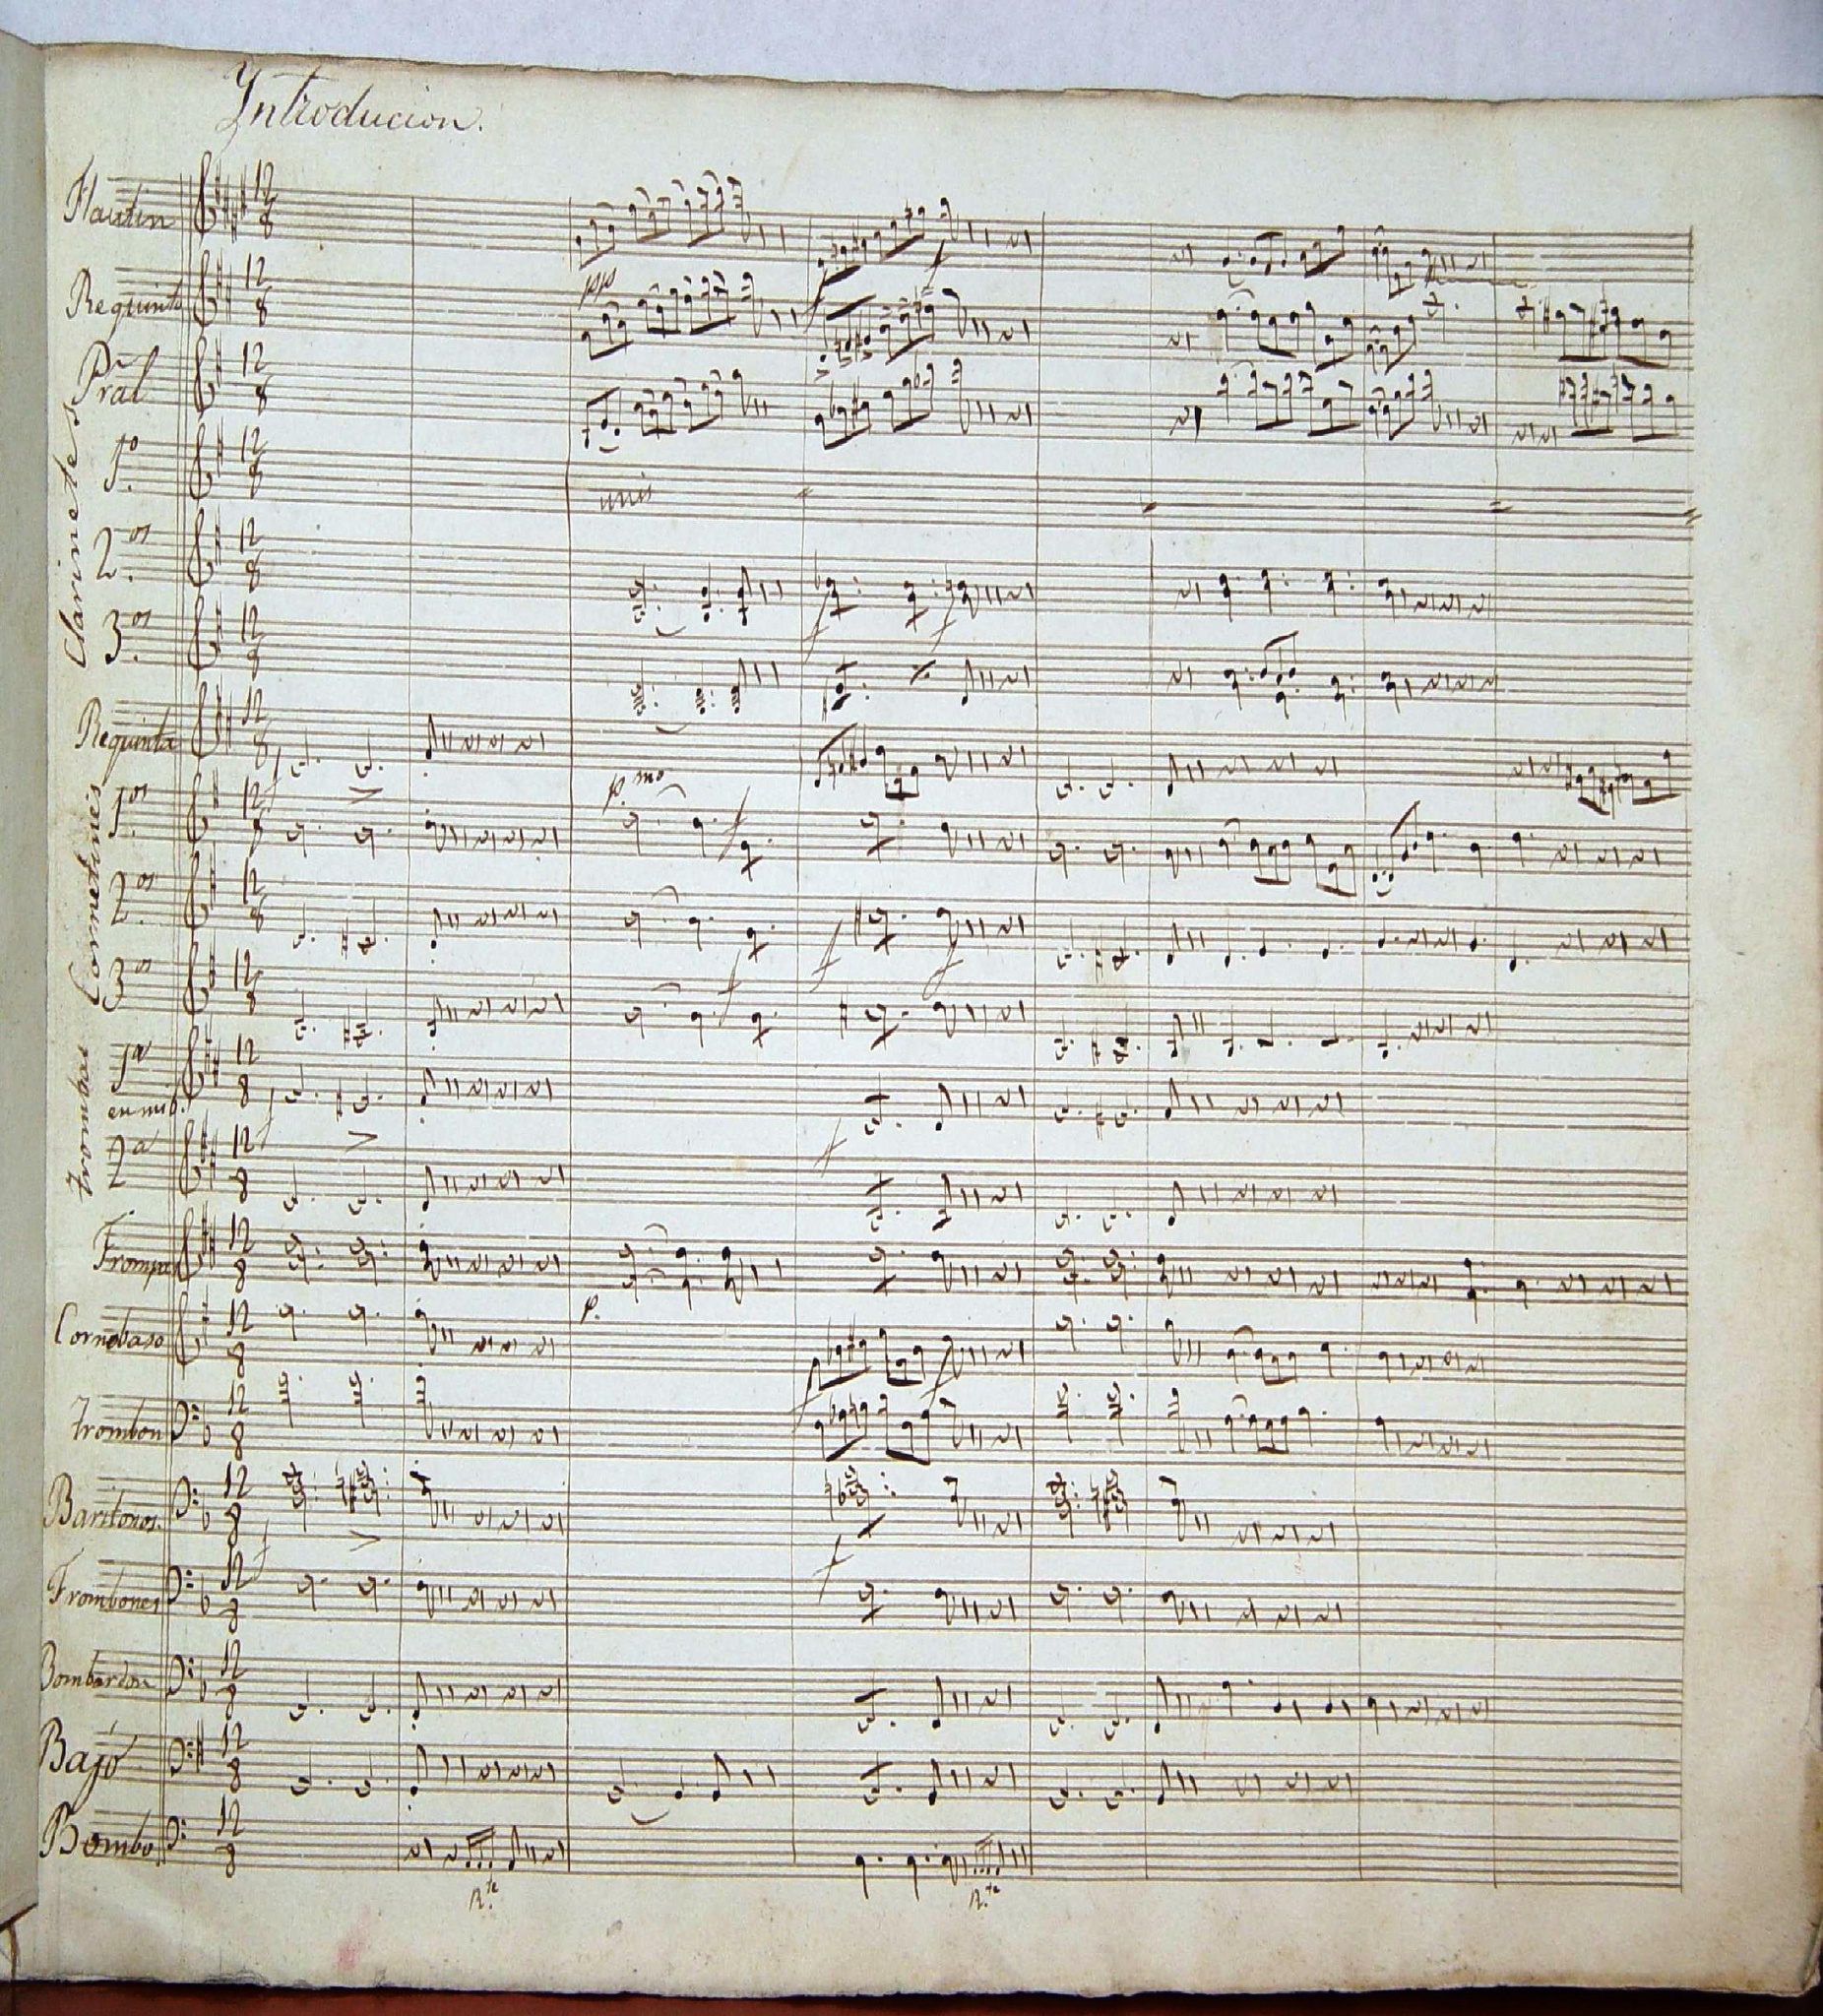 Introducion.
Flautin
Requinto
Clarinetes
Pral
1º
2os
3os
Requinta
Cornetines
1os
2os
3os
Trombas
1ª
en mi b.
2ª
Trompas
Cornobaso
Trombon
Baritonos.
Trombones
Bombardon
Bajo
Bombo
12
8
pp
f
unis
p.mo
p.
R.te
R.te